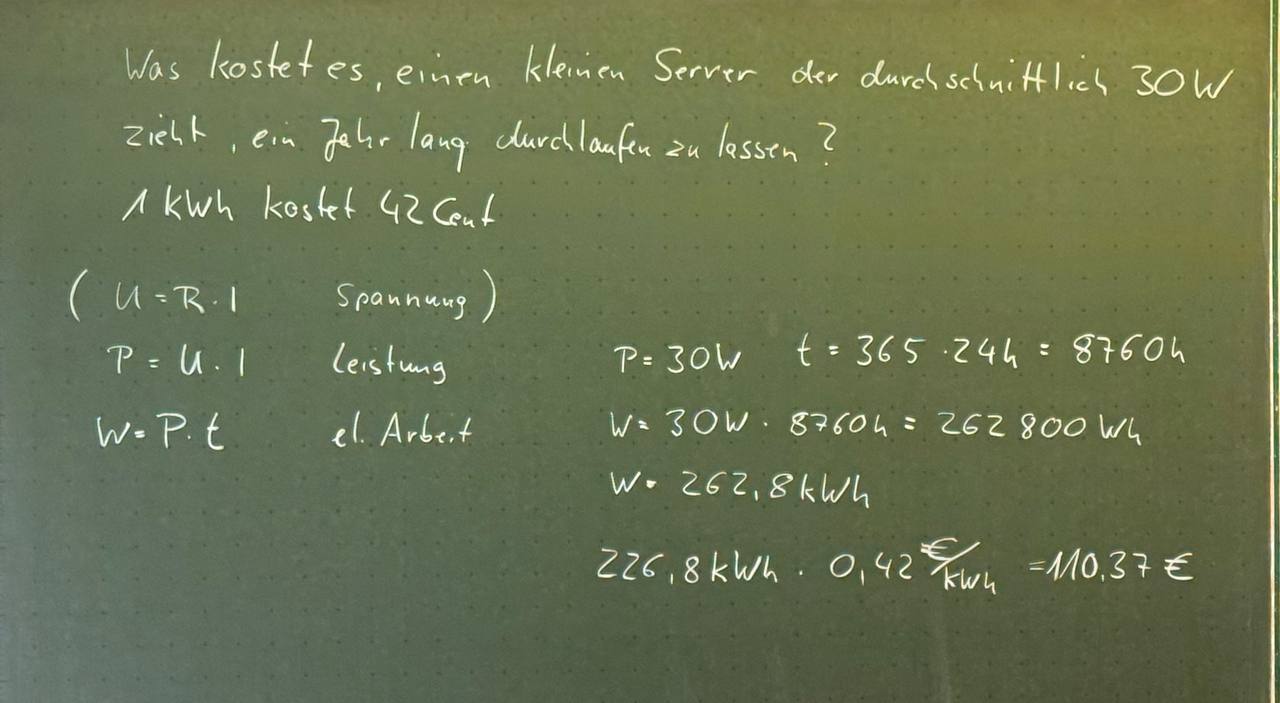 Was kostet es, einen kleinen Server der durchschnittlich 30W
zieht, ein Jahr lang durchlaufen zu lassen?
1 kWh kostet 42 Cent
( U = R · I Spannung )
P = U · I Leistung
W = P · t el. Arbeit
P = 30W t = 365 · 24h = 8760h
W = 30W · 8760h = 262 800 Wh
W = 262,8 kWh
226,8 kWh · 0,42 €/kWh = 110,37 €